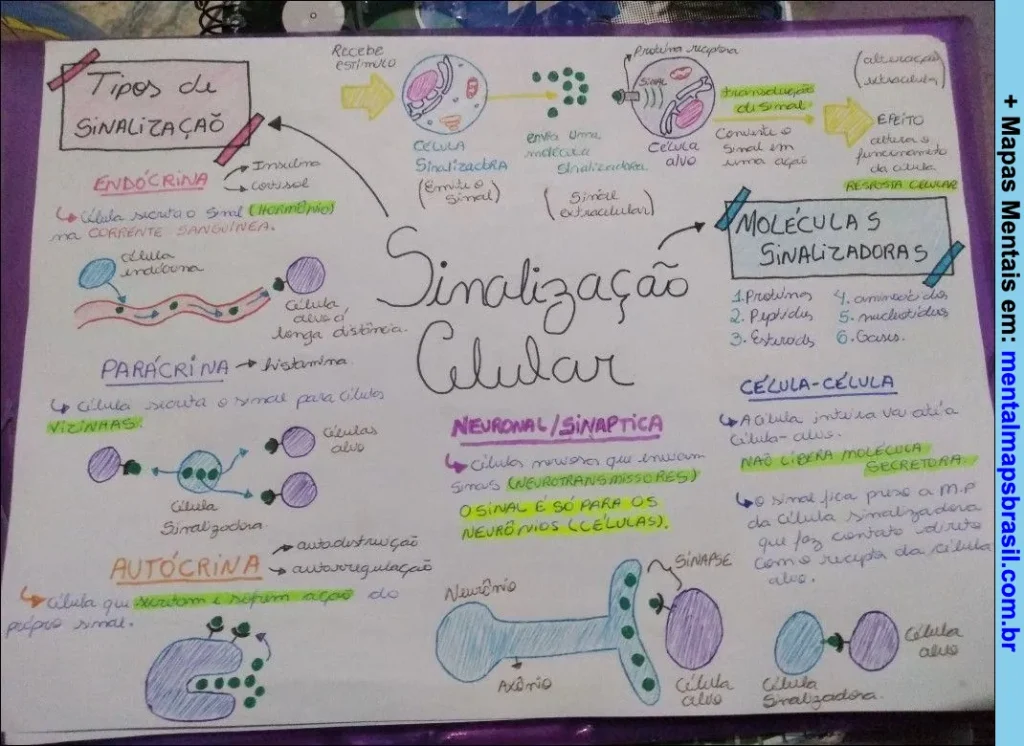 Tipos de
SINALIZAÇÃO
Recebe
estímulo
CÉLULA
Sinalizadora
(Emite o
Sinal)
envia uma
molécula
sinalizadora
(Sinal
extracelular)
Proteína receptora
SINAL
Célula
alvo
transdução
do sinal
Converte o
Sinal em
uma ação
(alteração
EFEITO
altera o
funcionamento
da célula
RESPOSTA CELULAR
ENDÓCRINA
→ Insulina
→ cortisol
↳ Célula secreta o sinal (HORMÔNIO)
na CORRENTE SANGUÍNEA.
célula
endócrina
Célula
alvo á
longa distância.
Sinalização
Celular
MOLÉCULAS
SINALIZADORAS
1. Proteínas
2. Peptídeos
3. Esteroides
4. aminoácidos
5. nucleotídeos
6. Gases.
PARÁCRINA → histamina
↳ Célula secreta o sinal para células
VIZINHAS.
Células
alvo
Célula
Sinalizadora
AUTÓCRINA
→ autodestruição
→ autorregulação
↳ Célula que secretam e sofrem ação do
próprio sinal.
NEURONAL/SINAPTICA
↳ Células nervosas que enviam
sinais (NEUROTRANSMISSORES)
O SINAL É SÓ PARA OS
NEURÔNIOS (CÉLULAS).
Neurônio
Axônio
SINAPSE
Célula
alvo
CÉLULA-CÉLULA
↳ A célula inteira vai até a
célula-alvo.
NÃO LIBERA MOLÉCULA
SECRETORA.
↳ O sinal fica preso a M.P
da célula sinalizadora
que faz contato direto
com o receptor da célula
alvo.
Célula
Sinalizadora
Célula
alvo
+ Mapas Mentais em: mentalmapsbrasil.com.br